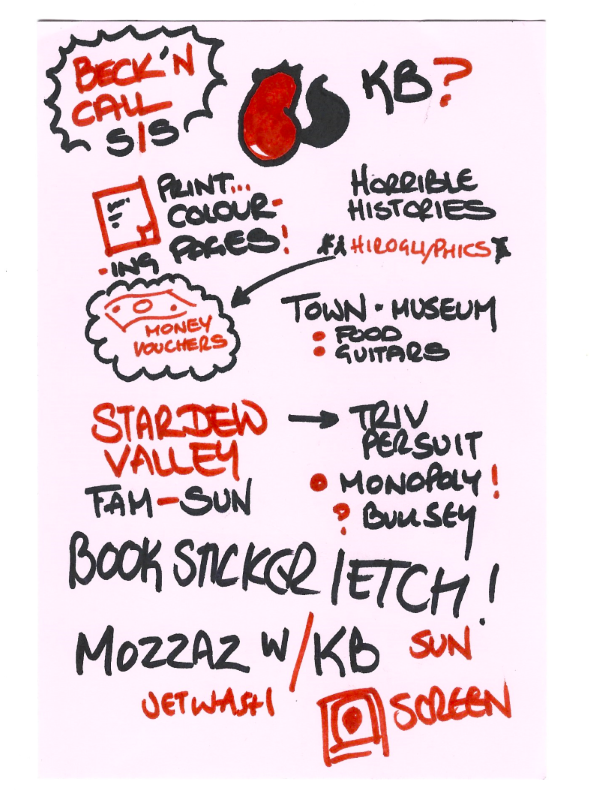 BECK'N
CALL
S/S
KB?
PRINT...
COLOUR-
-ING PAGES!
HORRIBLE
HISTORIES
HIROGLYPHICS
MONEY
VOUCHERS
TOWN · MUSEUM
• FOOD
• GUITARS
STARDEW
VALLEY
FAM-SUN
TRIV
PERSUIT
• MONOPOLY!
? BULLSEY
BOOK STICKER/ETCH!
MOZZAZ W/KB SUN
JETWASH
SCREEN